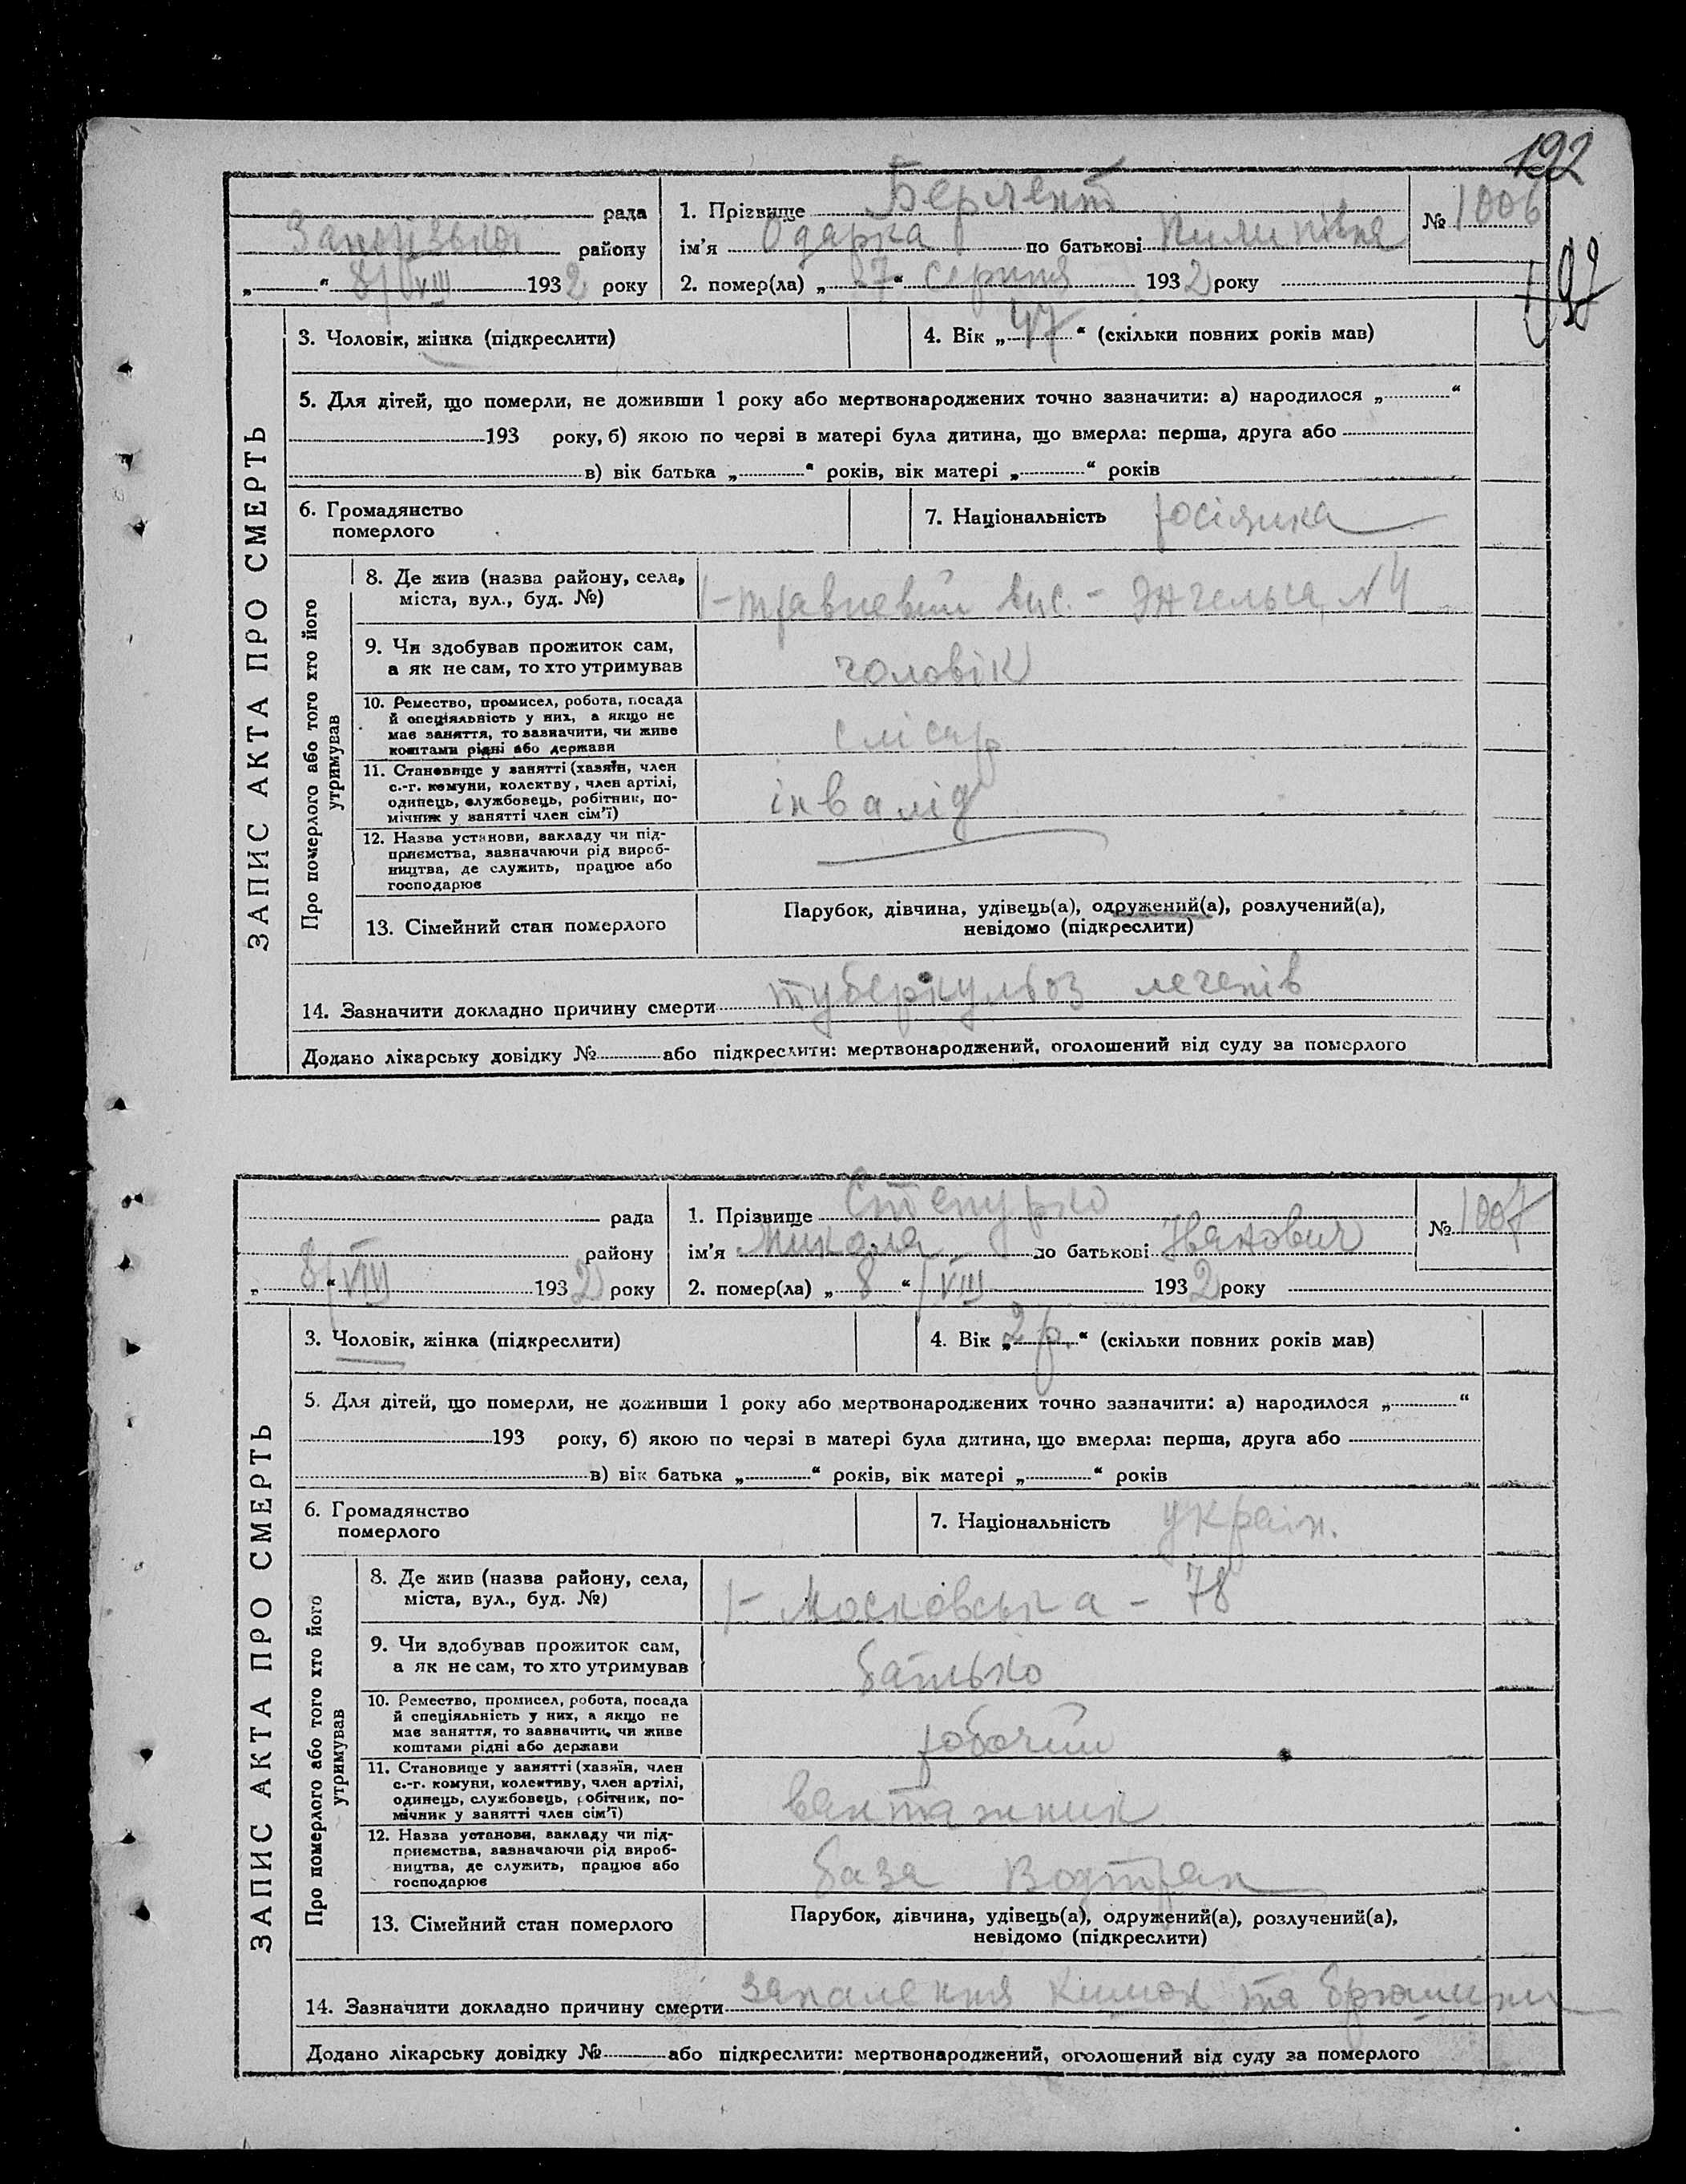 192
рада
району
„ “ 8/VIII 1932 року
1. Прізвище Берлент
ім’я Одарка по батькові Пилипівна
2. помер(ла) „7“ серпня 1932 року
№ 1006
ЗАПИС АКТА ПРО СМЕРТЬ
3. Чоловік, жінка (підкреслити)
4. Вік „47“ (скільки повних років мав)
5. Для дітей, що померли, не доживши 1 року або мертвонароджених точно зазначити: а) народилося „ “
193 року, б) якою по черзі в матері була дитина, що вмерла: перша, друга або
в) вік батька „ “ років, вік матері „ “ років
6. Громадянство
померлого
7. Національність росіянка
Про померлого або того хто його
утримував
8. Де жив (назва району, села,
міста, вул., буд. №)
1-травневий вис. - Энгельса, N 4
9. Чи здобував прожиток сам,
а як не сам, то хто утримував
чоловік
10. Ремество, промисел, робота, посада
й спеціяльність у них, а якщо не
має заняття, то зазначити, чи живе
коштами рідні або держави
слісар
11. Становище у занятті (хазяїн, член
с.-г. комуни, колектву, член артілі,
одинець, службовець, робітник, по-
мічник у занятті член сім’ї)
інвалід
12. Назва установи, закладу чи під-
приємства, зазначаючи рід вироб-
ництва, де служить, працює або
господарює
13. Сімейний стан померлого
Парубок, дівчина, удівець(а), одружений(а), розлучений(а),
невідомо (підкреслити)
14. Зазначити докладно причину смерти туберкульоз легенів
Додано лікарську довідку № або підкреслити: мертвонароджений, оголошений від суду за померлого
рада
району
„ “ 8/VIII 1932 року
1. Прізвище Степурко
ім’я Микола по батькові Іванович
2. помер(ла) „8“ /VIII 1932 року
№ 1007
ЗАПИС АКТА ПРО СМЕРТЬ
3. Чоловік, жінка (підкреслити)
4. Вік „2р.“ (скільки повних років мав)
5. Для дітей, що померли, не доживши 1 року або мертвонароджених точно зазначити: а) народилося „ “
193 року, б) якою по черзі в матері була дитина, що вмерла: перша, друга або
в) вік батька „ “ років, вік матері „ “ років
6. Громадянство
померлого
7. Національність україн.
Про померлого або того хто його
утримував
8. Де жив (назва району, села,
міста, вул., буд. №)
1- Московська - 78
9. Чи здобував прожиток сам,
а як не сам, то хто утримував
батько
10. Ремество, промисел, робота, посада
й спеціяльність у них, а якщо не
має заняття, то зазначити, чи живе
коштами рідні або держави
робочий
11. Становище у занятті (хазяїн, член
с.-г. комуни, колективу, член артілі,
одинець, службовець, робітник, по-
мічник у занятті член сім’ї)
вантажник
12. Назва установи, закладу чи під-
приємства, зазначаючи рід вироб-
ництва, де служить, працює або
господарює
база Водтран
13. Сімейний стан померлого
Парубок, дівчина, удівець(а), одружений(а), розлучений(а),
невідомо (підкреслити)
14. Зазначити докладно причину смерти запалення кишок та брюшини
Додано лікарську довідку № або підкреслити: мертвонароджений, оголошений від суду за померлого